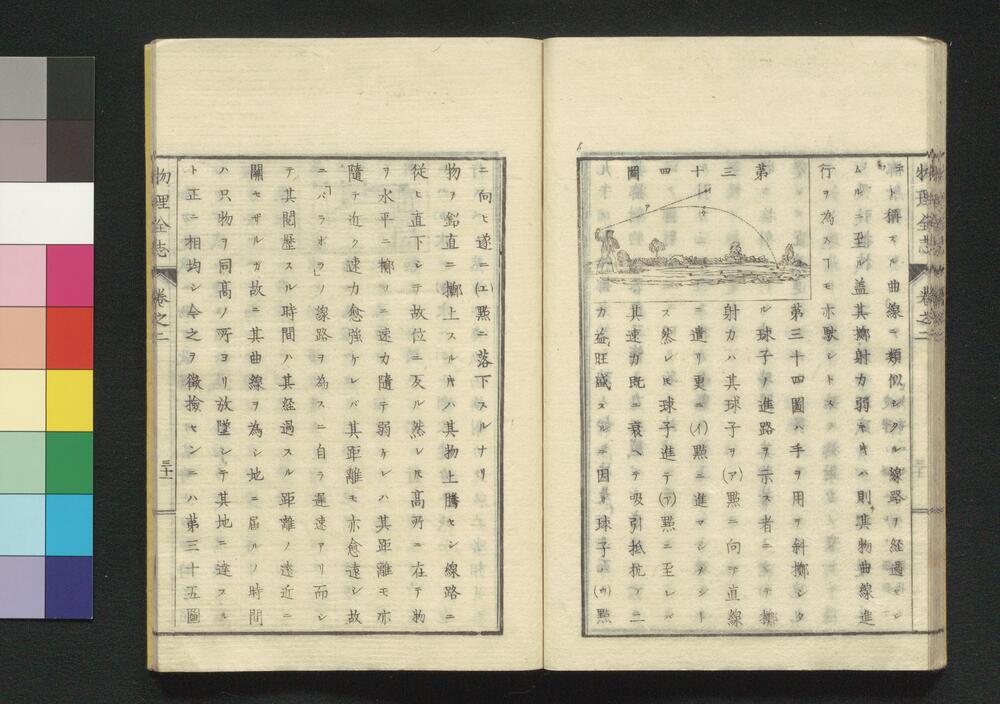 ラト稱スル曲線ニ類似シタル線路ヲ経過セシ
ムルニ至ル蓋其擲射力弱キ片ハ則其物曲線進
行ヲ為スヿモ亦駛シトス
第三十四圖ハ手ヲ用ヲ斜擲シタ
ル球子ノ進路ヲ示ス者ニテ擲
射力ハ其球子ヲ(ア)點ニ向ヲ直線
ニ遣リ更ニ(イ)點ニ進マシメント
ス然レ𪜈球子進テ(ア)點ニ至レバ
其速力既ニ衰ヘテ吸引抵抗ノ二
力益旺盛スルニ因リ球子(ウ)點
第三十四圖
物理全志
卷之二
ニ向ヒ遂ニ(エ)點ニ落下スルナリ
物ヲ鉛直ニ擲上スル片ハ其物上騰セシ線路ニ
従ヒ直下シテ故位ニ反ル然レ𪜈高所ニ在テ物
ヲ水平ニ擲ツニ速力隨テ弱ケレハ其距離モ亦
隨テ近ク速力愈強ケレバ其距離モ亦愈遠シ故
ニ「パラボラ」ノ線路ヲ為スニ自ラ遲速アリ而シ
テ其閲歴スル時間ハ其経過スル距離ノ遠近ニ
關セザルガ故ニ其曲線ヲ為シ地ニ届ルノ時間
ハ只物ヲ同高ノ所ヨリ放墜シテ其地ニ達スル
ト正ニ相均シ今之ヲ徴撿センニハ第三十五圖
物理全志
卷之二
三十二